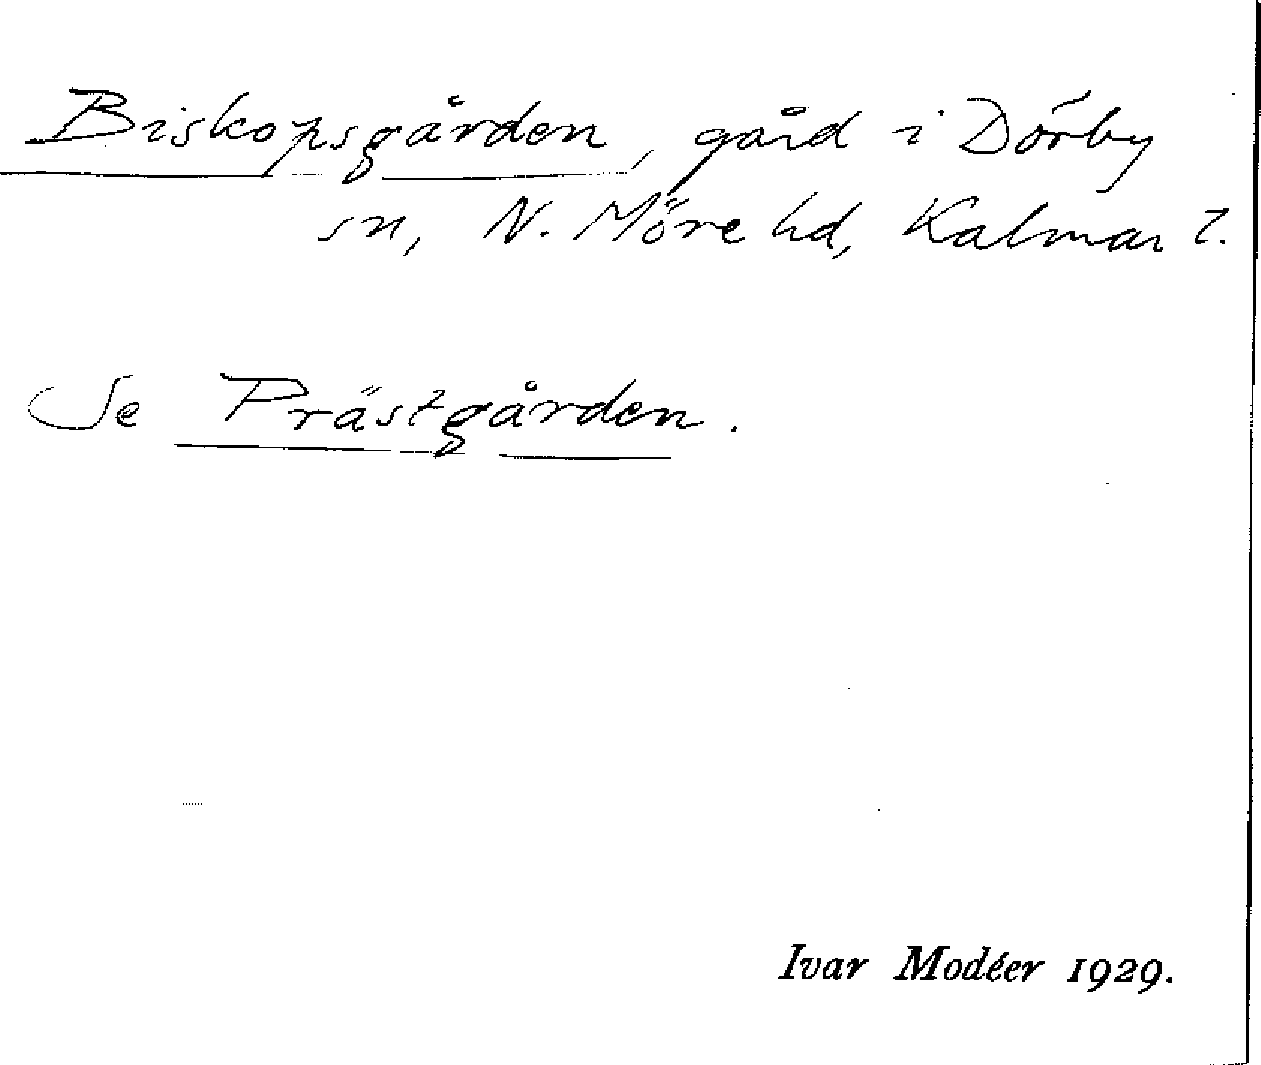 Biskopsgården, gård i Dörby
sn, N. Möre hd, Kalmar l.
Se Prästgården.
Ivar Modéer 1929.